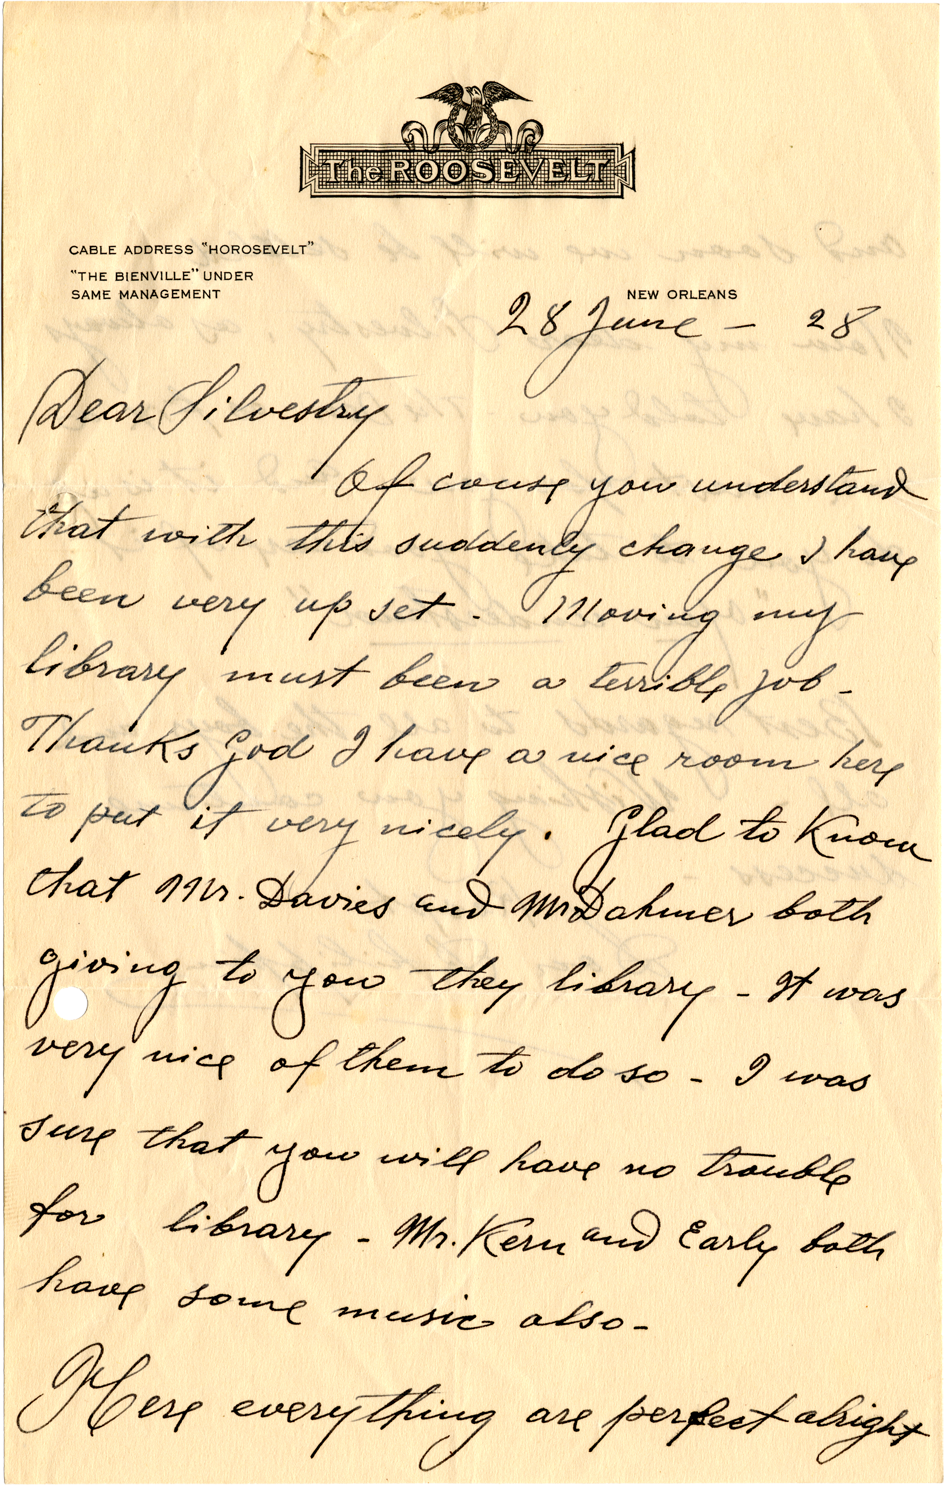 The ROOSEVELT
CABLE ADDRESS "HOROSEVELT"
"THE BIENVILLE" UNDER
SAME MANAGEMENT
NEW ORLEANS
28 June - 28
Dear Silvestry
Of couse you understand
that with this suddenly change I have
been very up set - Moving my
library must been a terrible job -
Thanks God I have a nice room here
to put it very nicely. Glad to Know
that Mr. Davies and Mr Dahmer both
giving to you they library - It was
very nice of them to do so - I was
sure that you will have no trouble
for library - Mr. Kern and Early both
have some music also -
Here everything are perfect alright